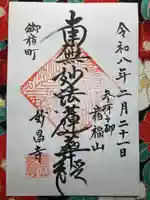 令和八年二月二十一日
宿福山
南無妙法蓮華経
妙昌寺
御宿町